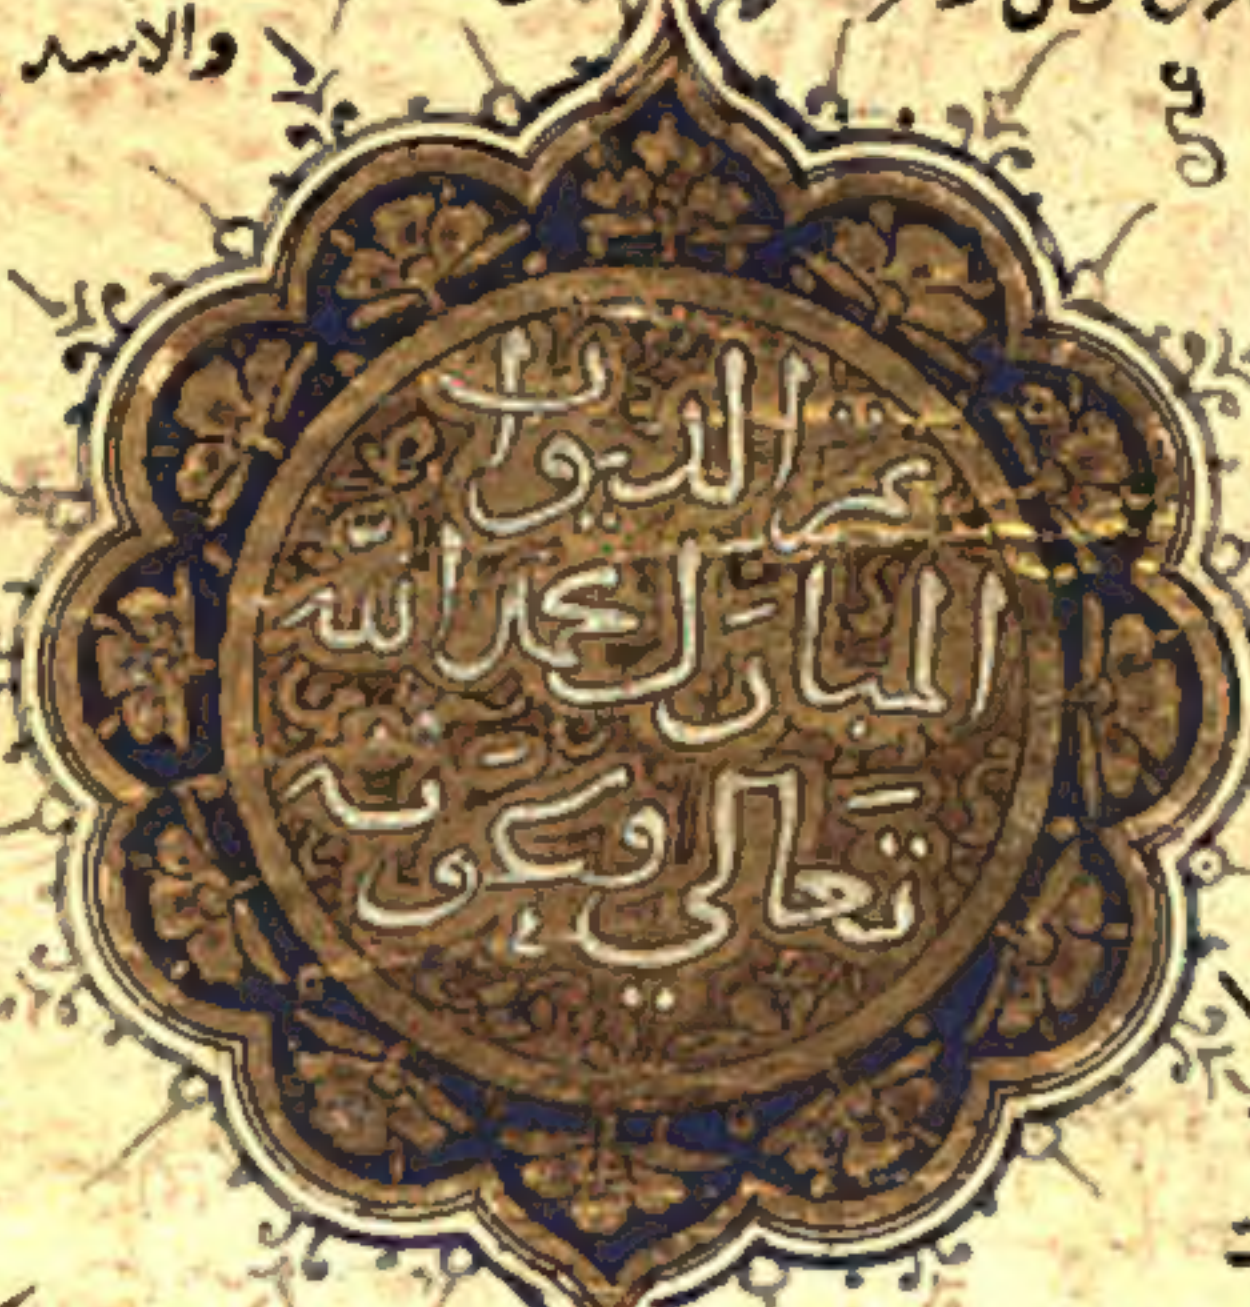 والاسد
تم الديوان
المبارك بحمد الله
تعالى وعونه